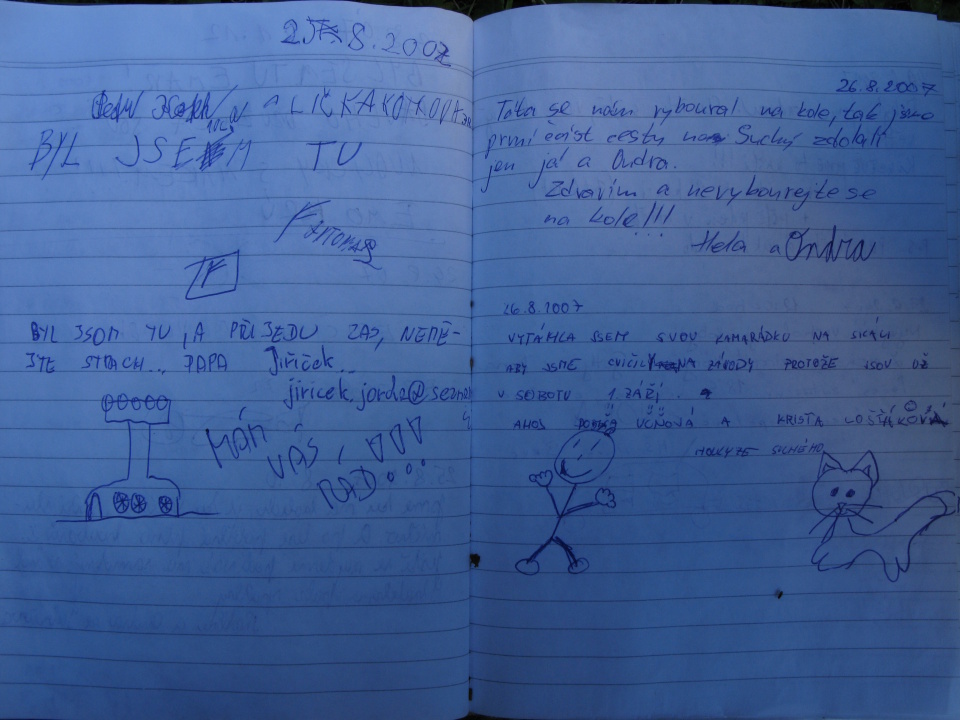 .8.2007
BYL JSEM TU
TF
BYL JSOM TU, A PŘIJEDU ZAS, NEMĚ-
JTE STRACH... PAPA Jiříček...
MÁM
VÁS,
RÁD
26.8.2007
Táta se nám vyboural na kole, tak jsme
první část cesty na Suchý zdolali
jen já a Ondra.
Zdravím a nevybourejte se
na kole!!!
Hela a Ondra
26.8.2007
VYTÁHLA JSEM SVOU KAMARÁDKU NA SKÁLY
ABY JSME CVIČILY NA ZÁVODY PROTOŽE JSOU UŽ
V SOBOTU 1. ZÁŘÍ.
AHOJ A KRISTA
HOLKY ZE SUCHÉHO